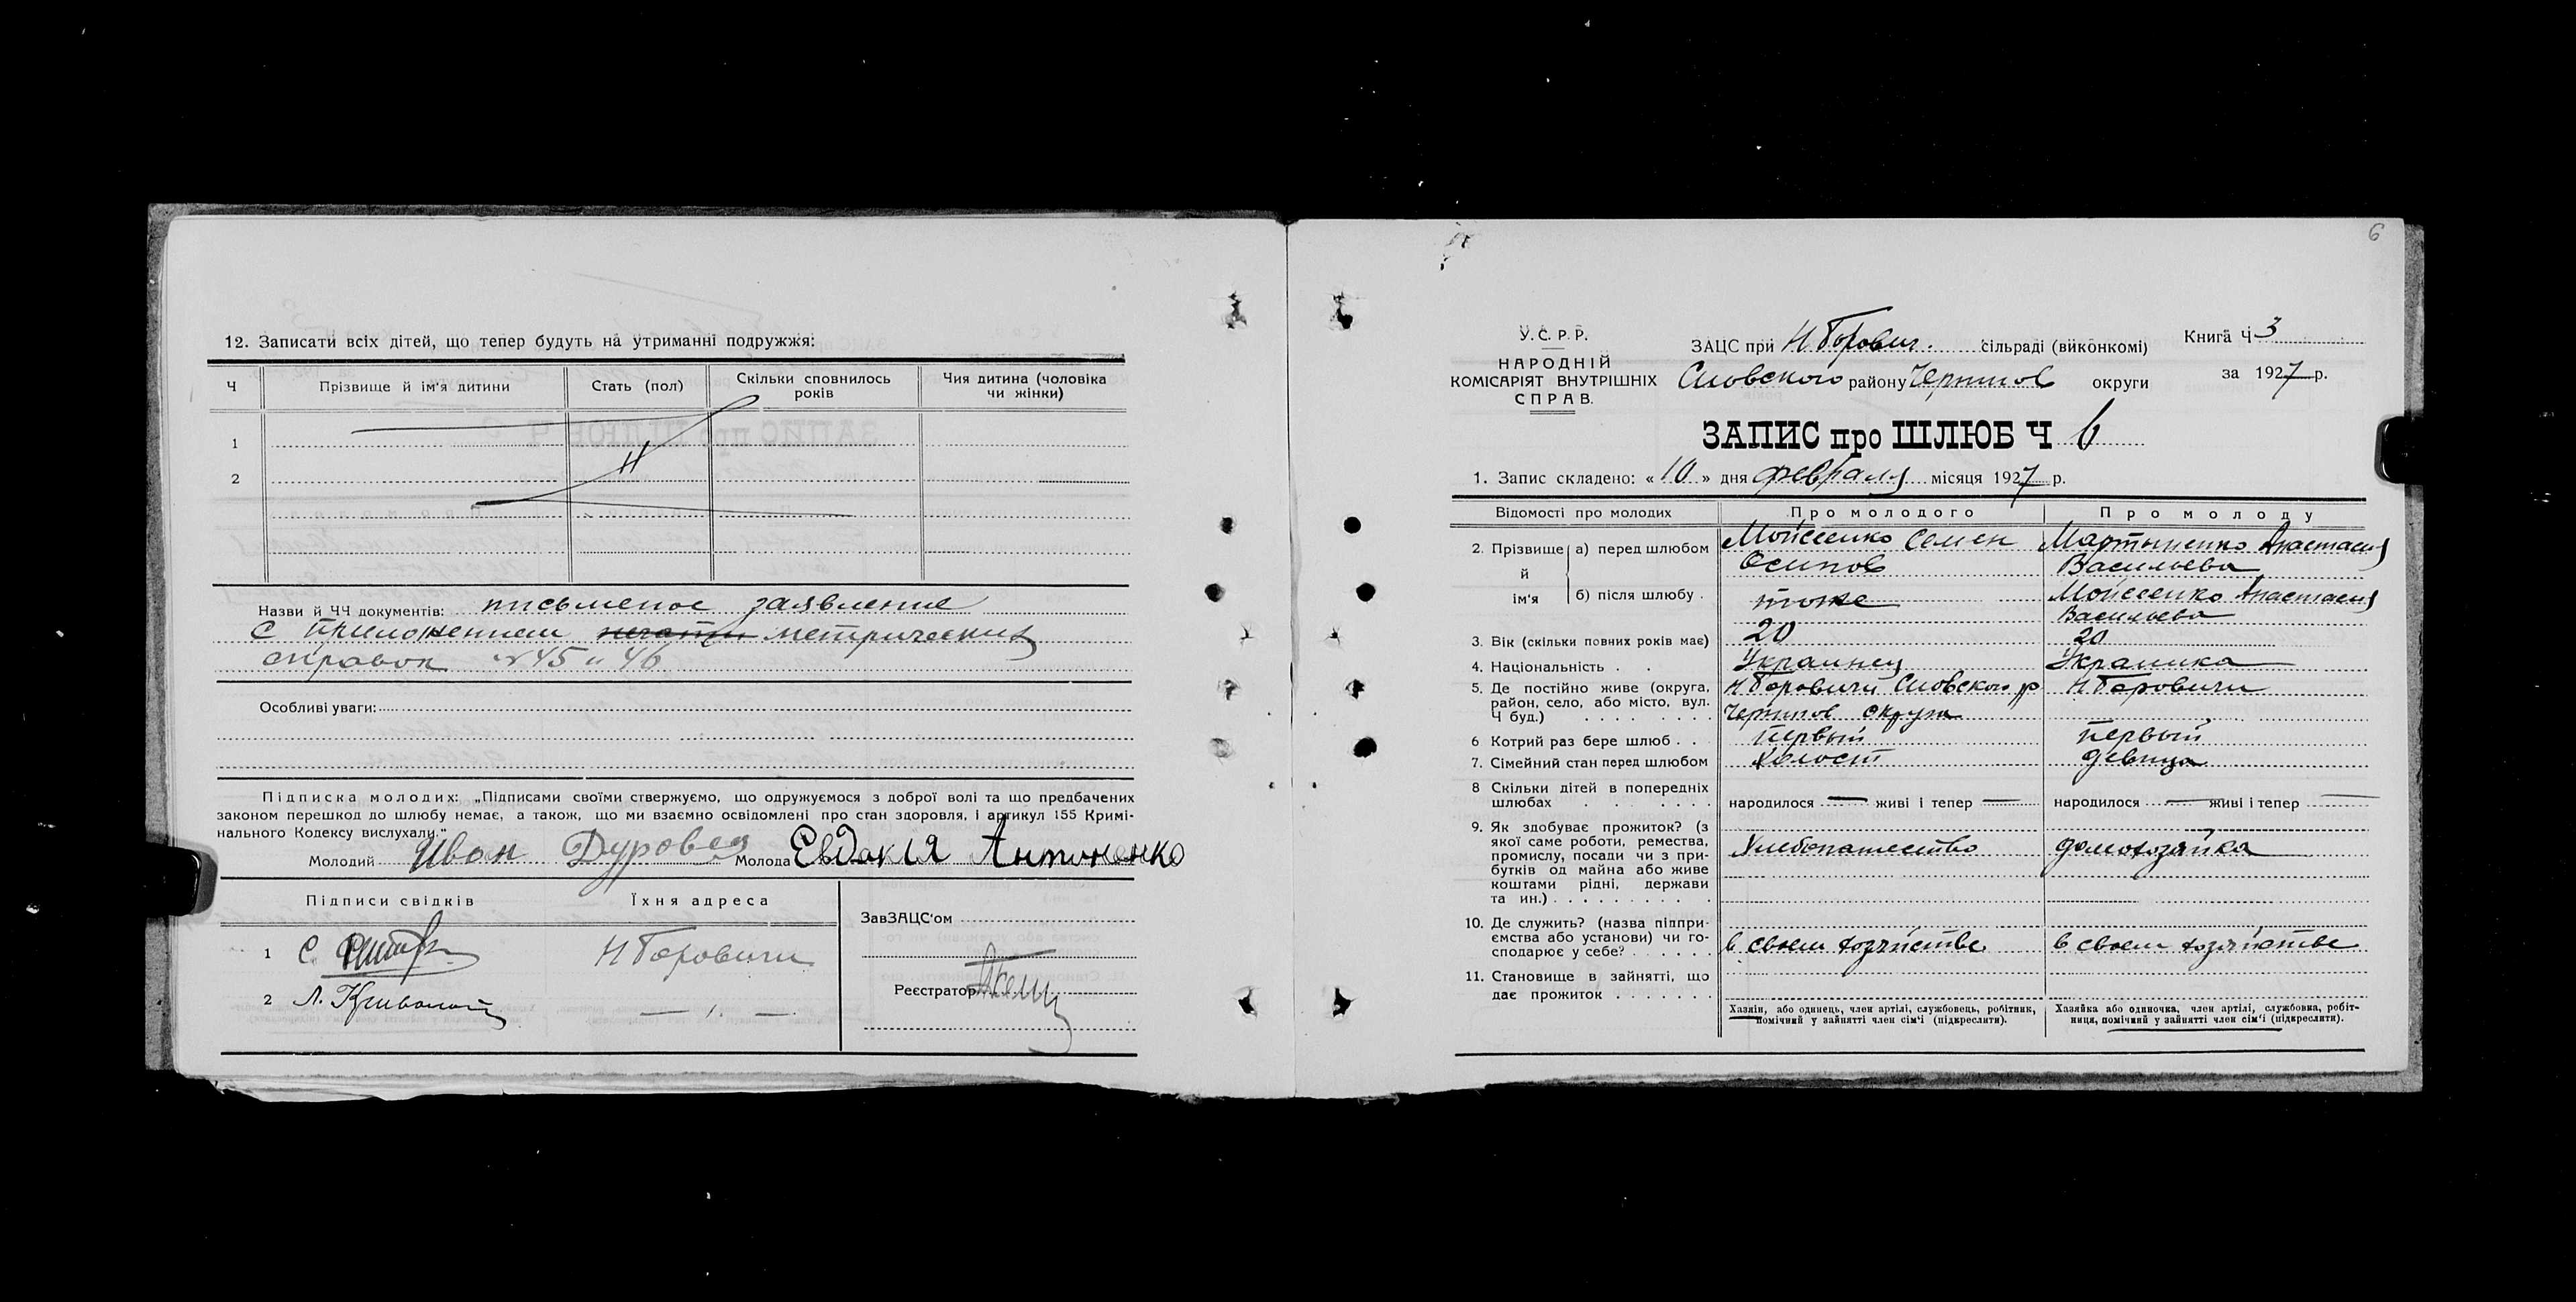 12. Записати всіх дітей, що тепер будуть на утриманні подружжя:
Ч Прізвище й ім'я дитини Стать (пол) Скільки сповнилось років Чия дитина (чоловіка чи жінки)
1
2
Назви й ЧЧ документів: письменое заявление
с приложением метрических
справок №45 и 46
Особливі уваги:
Підписка молодих: „Підписами своїми стверджуємо, що одружуємося з доброї волі та що предбачених
законом перешкод до шлюбу немає, а також, що ми взаємно освідомлені про стан здоровля, і артикул 155 Кримі-
нального Кодексу вислухали."
Молодий Иван Дуровед Молода Евдакія Антоненко
Підписи свідків Їхня адреса
ЗавЗАЦС'ом
1 С. Н Боровичи
2 Л. — „ —
Реєстратор
6
У.С.Р.Р.
НАРОДНІЙ
КОМІСАРІЯТ ВНУТРІШНІХ
СПРАВ.
ЗАЦС при Н Борович. сільраді (виконкомі)
Сновского району Чернигов округи
Книга Ч 3
за 1927 р.
ЗАПИС про ШЛЮБ Ч 6
1. Запис складено: «10» дня февраля місяця 1927 р.
Відомості про молодих Про молодого Про молоду
2. Прізвище й ім'я а) перед шлюбом Мойсеенко Семен Осипов Мартыненко Анастасия Васильева
б) після шлюбу . тоже Мойсеенко Анастасия Васильева
3. Вік (скільки повних років має) 20 20
4. Національність . . Украинец Украинка
5. Де постійно живе (округа, Н Боровичи Сновского р Н Боровичи
район, село, або місто, вул. Чернигов округи
Ч буд.)
6 Котрий раз бере шлюб . . Первый первый
7. Сімейний стан перед шлюбом Холост девица
8 Скільки дітей в попередніх
шлюбах народилося — живі і тепер — народилося — живі і тепер —
9. Як здобуває прожиток? (з
якої саме роботи, ремества, Хлебопашество домохозяйка
промислу, посади чи з при-
бутків од майна або живе
коштами рідні, держави
та ин.)
10. Де служить? (назва підпри-
ємства або установи) чи го- в своем хозяйстве в своем хозяйстве
сподарює у себе?
11. Становище в зайнятті, що
дає прожиток
Хазяїн, або одинець, член артілі, службовець, робітник,
помічний у зайнятті член сім'ї (підкреслити).
Хазяйка або одиночка, член артілі, службовка, робіт-
ниця, помічний у зайнятті член сім'ї (підкреслити).